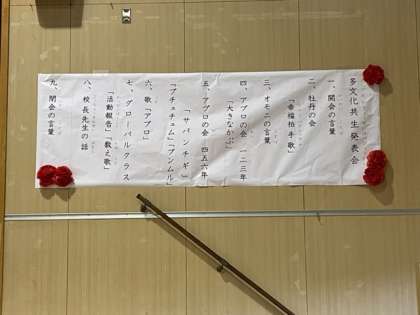 多文化共生発表会
一、開会の言葉
二、牡丹の会
「幸福拍手歌」
三、オモニの言葉
四、アプロの会 一二三年
「大きなかぶ」
五、アプロの会 四五六年
「サパンチギ」
「プチェチュム」「プンムル」
六、歌「アプロ」
七、グローバルクラス
「活動報告」「数え歌」
八、校長先生の話
九、閉会の言葉